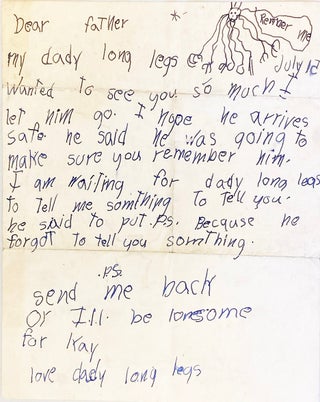 Dear father
Remember me
my dady long legs July 12
wanted to see you so much I
let him go. I hope he arrives
safe. he said he was going to
make sure you remember him.
I am waiting for dady long legs
to tell me somthing to tell you.
he said to put .P.s. Because he
forgot to tell you somthing.
.P.s.
send me back
Or I.ll. be lonsome
for Kay
love dady long legs